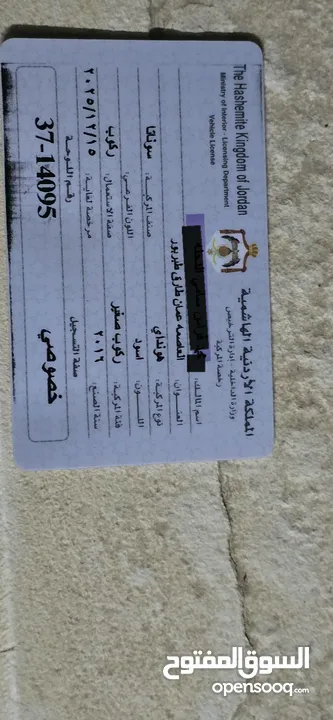 The Hashemite Kingdom of Jordan
Ministry of Interior - Licensing Department
Vehicle License
المملكة الأردنية الهاشمية
وزارة الداخلية - إدارة الترخيص
رخصة المركبة
اسم المالك:
العنوان: العاصمه عمان طارق طبربور
نوع المركبة: هونداي
صنف المركبة: سوناتا
اللون: اسود
اللون الفرعي:
فئة المركبة: ركوب صغير
صفة الاستعمال: ركوب
سنة الصنع: ٢٠١٦
مرخصة لغاية: ٢٠٢٥/١٢/١٥
صفة التسجيل
رقم اللوحة
خصوصي
37-14095
السوق المفتوح
opensooq.com